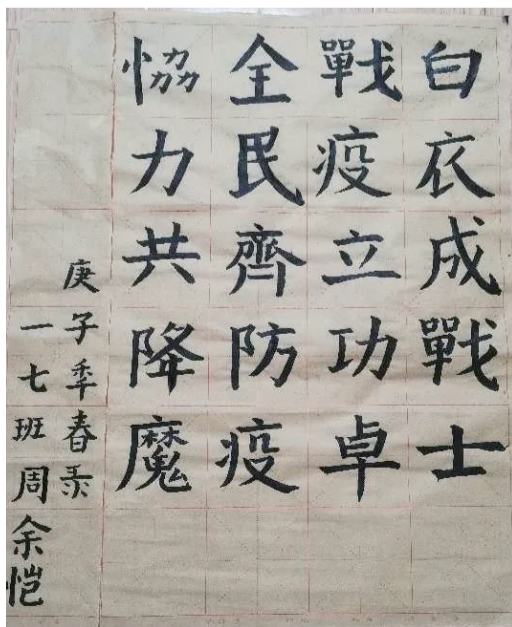 白衣成戰士
戰疫立功卓
全民齊防疫
恊力共降魔
庚子季春
一七班周余恺